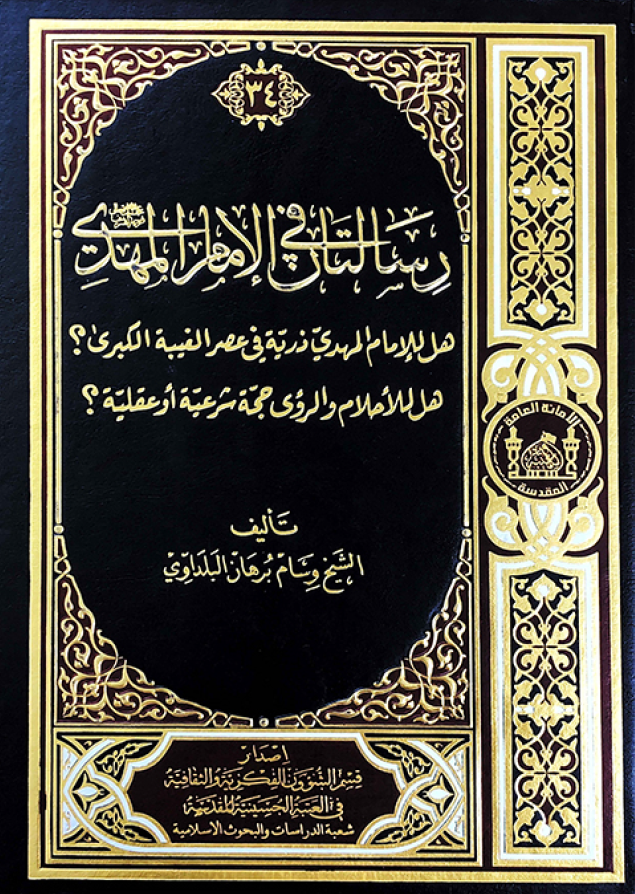 ٣٤
رسالتان في الإمام المهدي
هل للإمام المهديّ ذريّة في عصر الغيبة الكبرىٰ؟
هل للأحلام والرؤى حجّة شرعيّة أو عقليّة؟
تأليف
الشيخ وسام برهان البلداوي
إصدار
قسم الشؤون الفكرية والثقافية
في العتبة الحسينية المقدسة
شعبة الدراسات والبحوث الاسلامية
الأمانة العامة
المقدسة